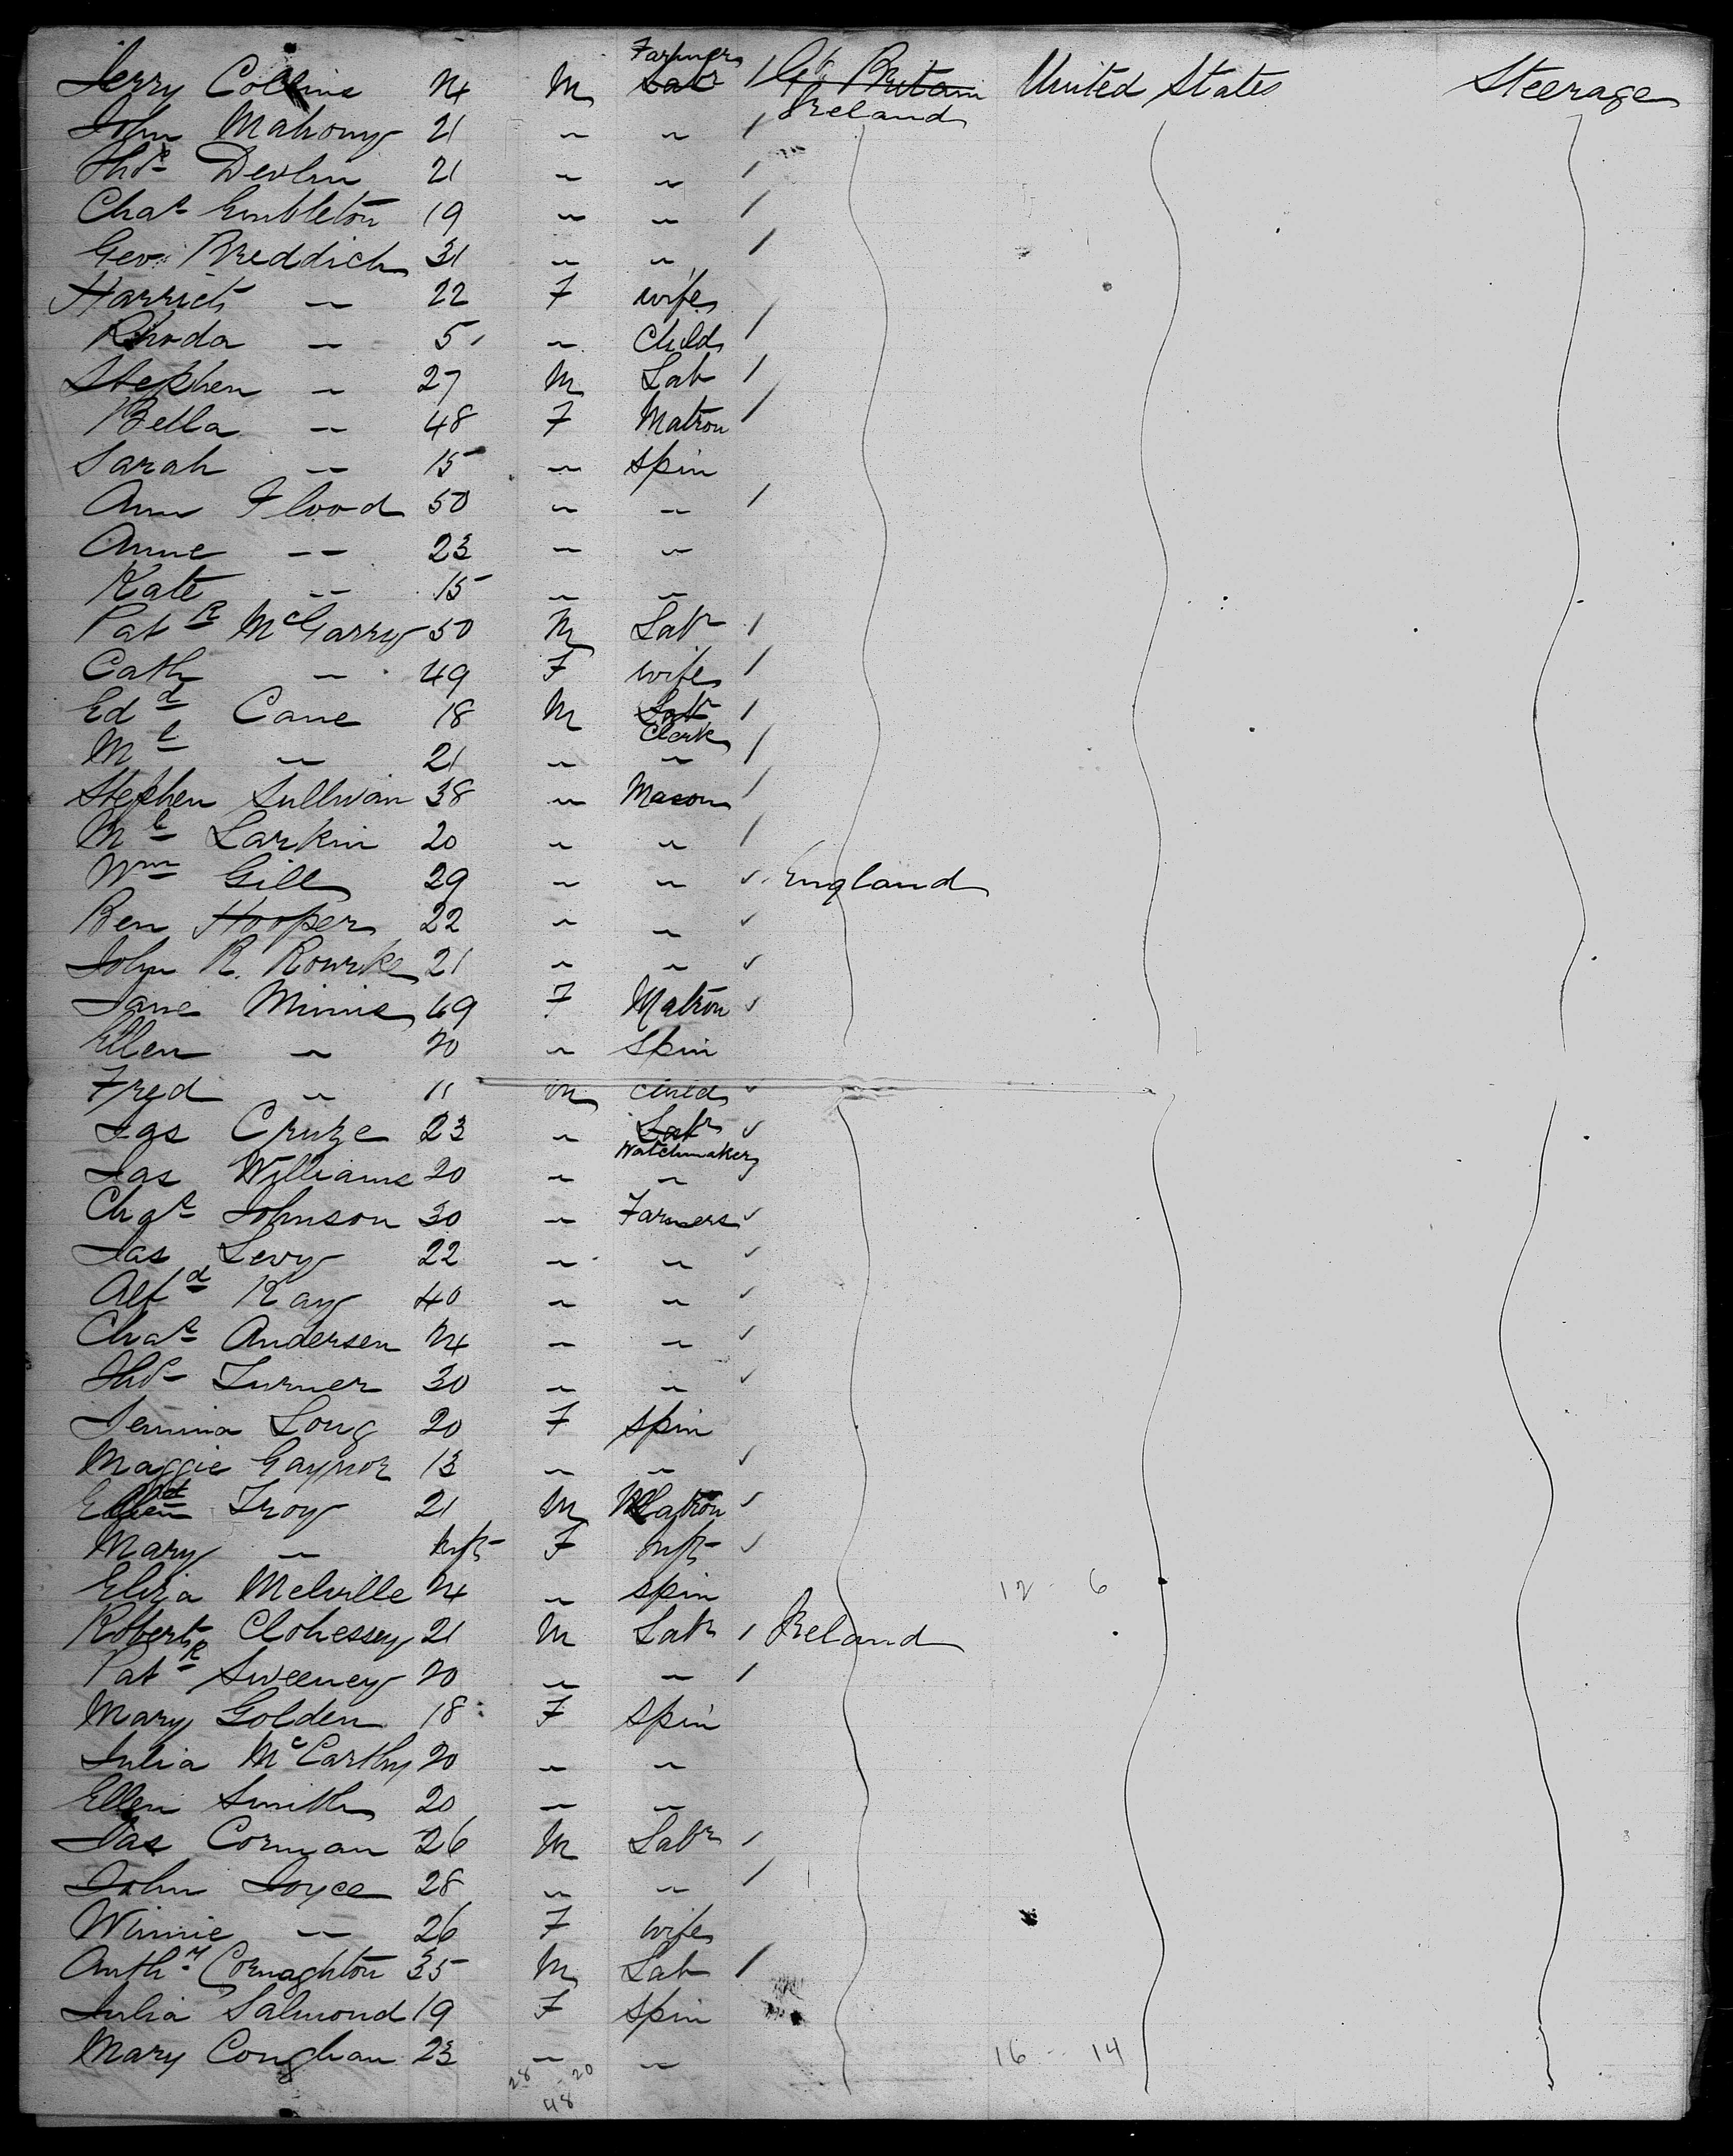 Jerry Collins 24 M Labr Farmers / Gt. Britain Ireland United States Steerage
John Mahony 21 " " /
Thos Devlin 21 " " /
Chas Embleton 19 " " /
Geo. Breddich 31 " " /
Harriet " 22 F wife
Rhoda " 5 " Child /
Stephen " 27 M Lab /
Bella " 48 F Matron /
Sarah " 15 " Spin
Ann Flood 50 " " /
Anne " 23 " "
Kate " 15 " "
Patk McGarry 50 M Labr /
Cath " 49 F wife /
Edd Cane 18 M Labr Clerk /
Ml " 21 " " /
Stephen Sullivan 38 " Mason /
Ml Larkin 20 " " /
Wm Gill 29 " " ✓ England
Ben Hooper 22 " " ✓
John R. Rourke 21 " " ✓
Jane Minns 49 F Matron ✓
Ellen " 20 " Spin
Fred " 11 M child ✓
Jas Cruze 23 " Labr Watchmaker ✓
Jas Williams 20 " "
Chas Johnson 30 " Farmers ✓
Jas Levy 22 " " ✓
Alfd Ray 40 " " ✓
Chas Andersen 24 " " ✓
Thos Turner 30 " " ✓
Jemima Long 20 F Spin
Maggie Gaynor 13 " " ✓
Troy 21 M Matron ✓
Mary " Inft F Inft ✓
Eliza Melville 24 " spin 12 - 6
Robert Clohessey 21 M Labr / Ireland
Patk Sweeney 20 " " /
Mary Golden 18 F Spin
Julia McCarthy 20 " "
Ellen Smith 20 " "
Jas Corman 26 M Labr /
John Joyce 28 " " /
Winnie " 26 F wife
Anthy Cornaghton 35 M Lab /
Julia Salmond 19 F Spin
Mary Conghan 23 " " 16 - 14
28 20
48